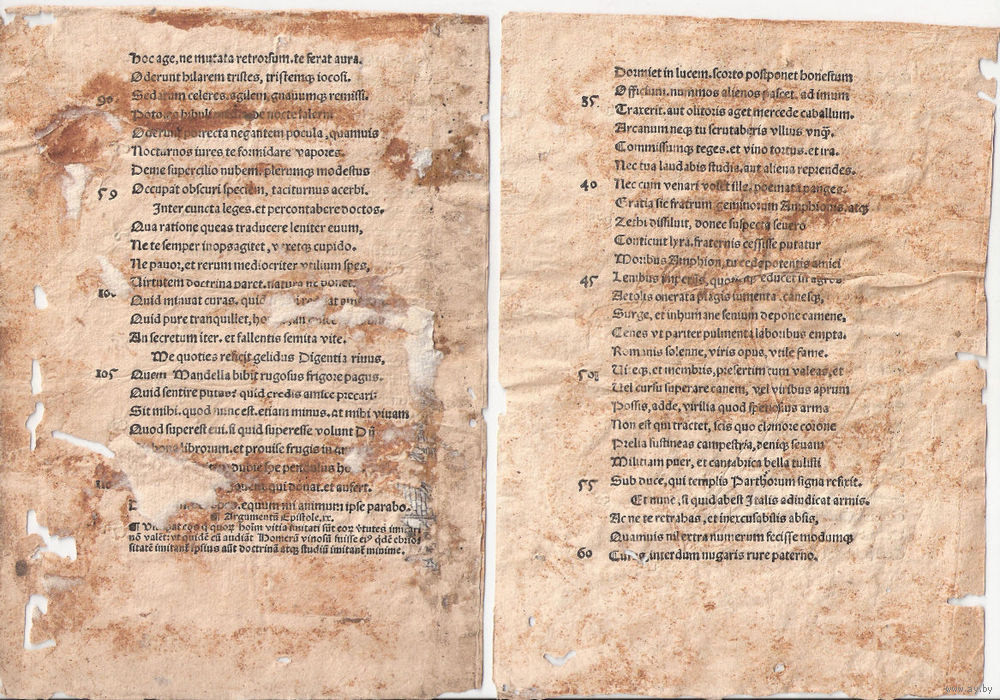 Hoc age, ne mutata retrorsum. te ferat aura.
Oderunt hilarem tristes, tristemq; iocosi.
90 Sedatum celeres. agilem, gnauumq; remissi.
bibuli de nocte falerni
Oderunt porrecta negantem pocula, quamuis
Nocturnos iures te formidare vapores.
Deme supercilio nubem. plerumq; modestus
59 Occupat obscuri speciem, taciturnus acerbi.
Inter cuncta leges. et percontabere doctos.
Qua ratione queas traducere leniter euum,
Ne te semper inops agitet, vexetq; cupido.
Ne pauor, et rerum mediocriter vtilium spes,
Virtutem doctrina paret. natura ne donet.
Quid minuat curas. quid
Quid pure tranquillet, an
An secretum iter. et fallentis semita vite.
Me quoties reficit gelidus Digentia riuus,
105 Quem Mandella bibit rugosus frigore pagus.
Quid sentire putas? quid credis amice precari:
Sit mihi. quod nunc est. etiam minus. at mihi viuam
Quod superest eui. si quid superesse volunt
librorum. et prouise frugis in
spe pendulus
110 qui donat. et aufert.
equum mi animum ipse parabo.
¶ Argumentũ Epistole. xx.
vitia imitati sũt
cũ audiãt Homerũ vinosũ fuisse
ipsius aũt doctrinã atq; studiũ imitant minime.
Dormiet in lucem. scorto postponet honestum
35 Officium. nummos alienos pascet. ad imum
Traxerit. aut olitoris aget mercede caballum.
Arcanum neq; tu scrutaberis vllius vnq̃.
Commissumq; teges. et vino tortus. et ira.
Nec tua laudabis studia. aut aliena reprendes.
40 Nec cum venari volet ille. poemata panges.
Gratia sic fratrum geminorum Amphionis. atq;
Zethi dissiluit, donec suspecta seuero
Conticuit lyra. fraternis cessisse putatur
Moribus Amphion, tu cede potentis amici
45 Lenibus imperiis, quotiesq; educet in agros
Aetolis onerata plagis iumenta. canesq;,
Surge, et inhumane senium depone camene,
Cenes vt pariter pulmenta laboribus empta.
Romanis solenne, viris opus, vtile fame.
50 Uiteq;, et membris, presertim cum valeas, et
Uel cursu superare canem, vel viribus aprum
Possis, adde, virilia quod speciosius arma
Non est qui tractet, scis quo clamore corone
Prelia sustineas campestria, deniq; seuam
Militiam puer, et cantabrica bella tulisti
55 Sub duce, qui templis Parthorum signa refixit.
Et nunc, si quid abest Italis adiudicat armis.
Ac ne te retrahas, et inexcusabilis absis,
Quamuis nil extra numerum fecisse modumq;
60 Curas, interdum nugaris rure paterno.
www.ay.by